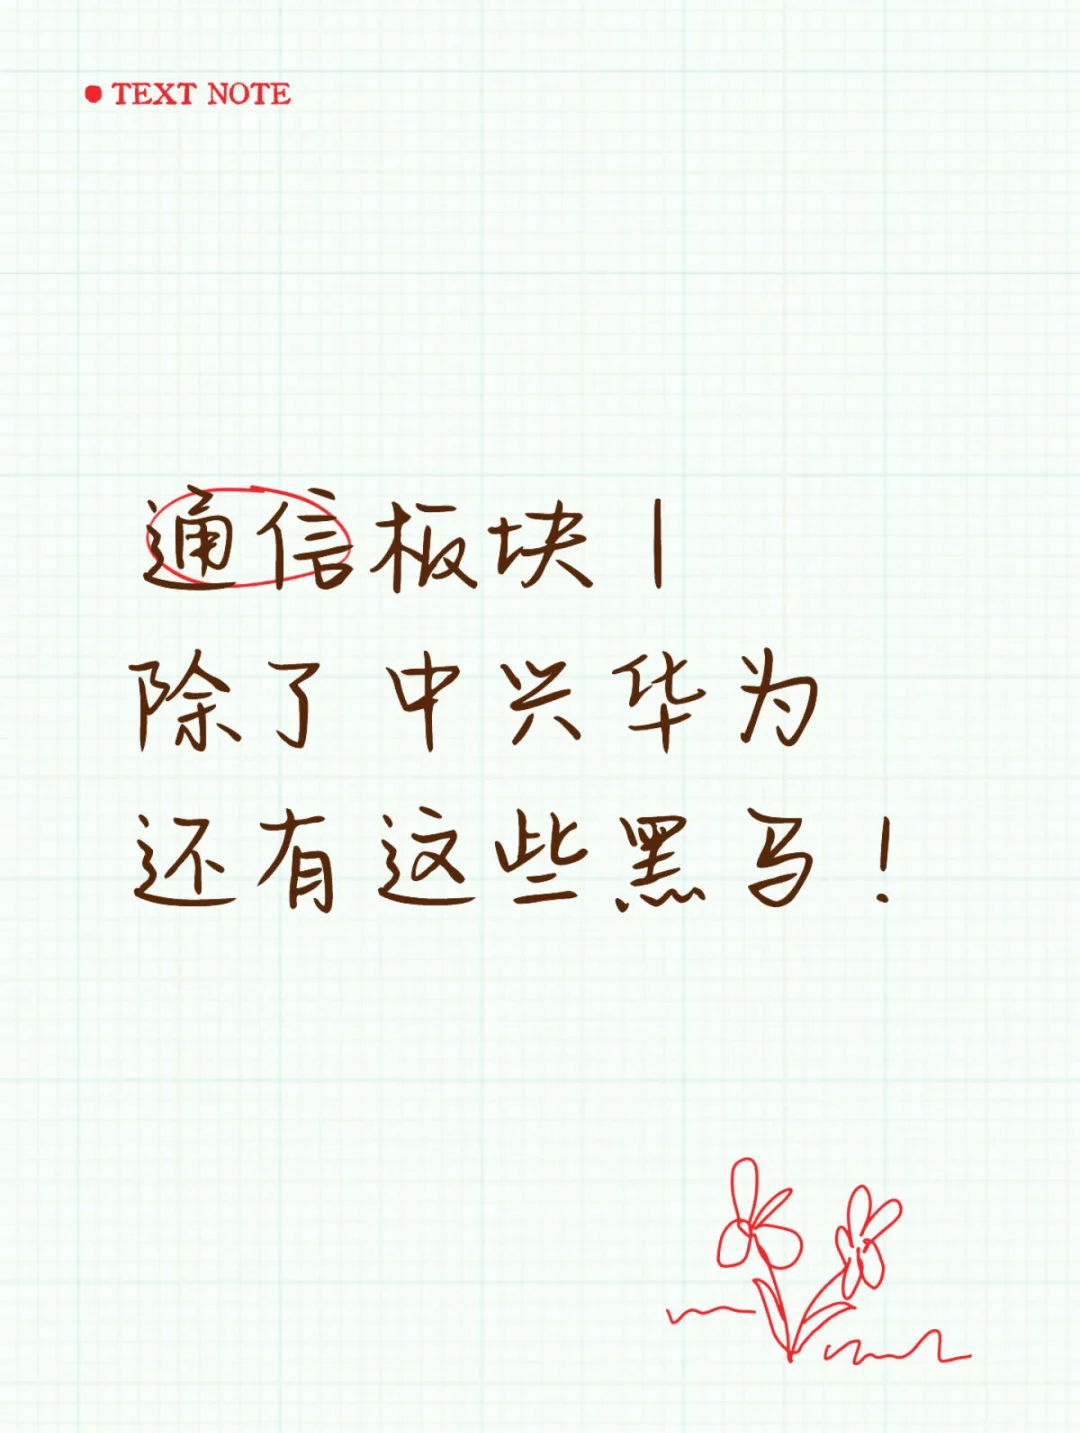 TEXT NOTE
通信板块 |
除了中兴华为
还有这些黑马！